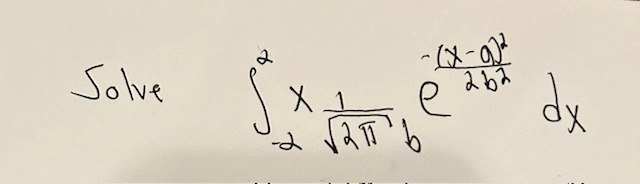 Solve ∫_{-2}^{2} x \frac{1}{\sqrt{2π} b} e^{\frac{-(x-a)^2}{2b^2}} dx